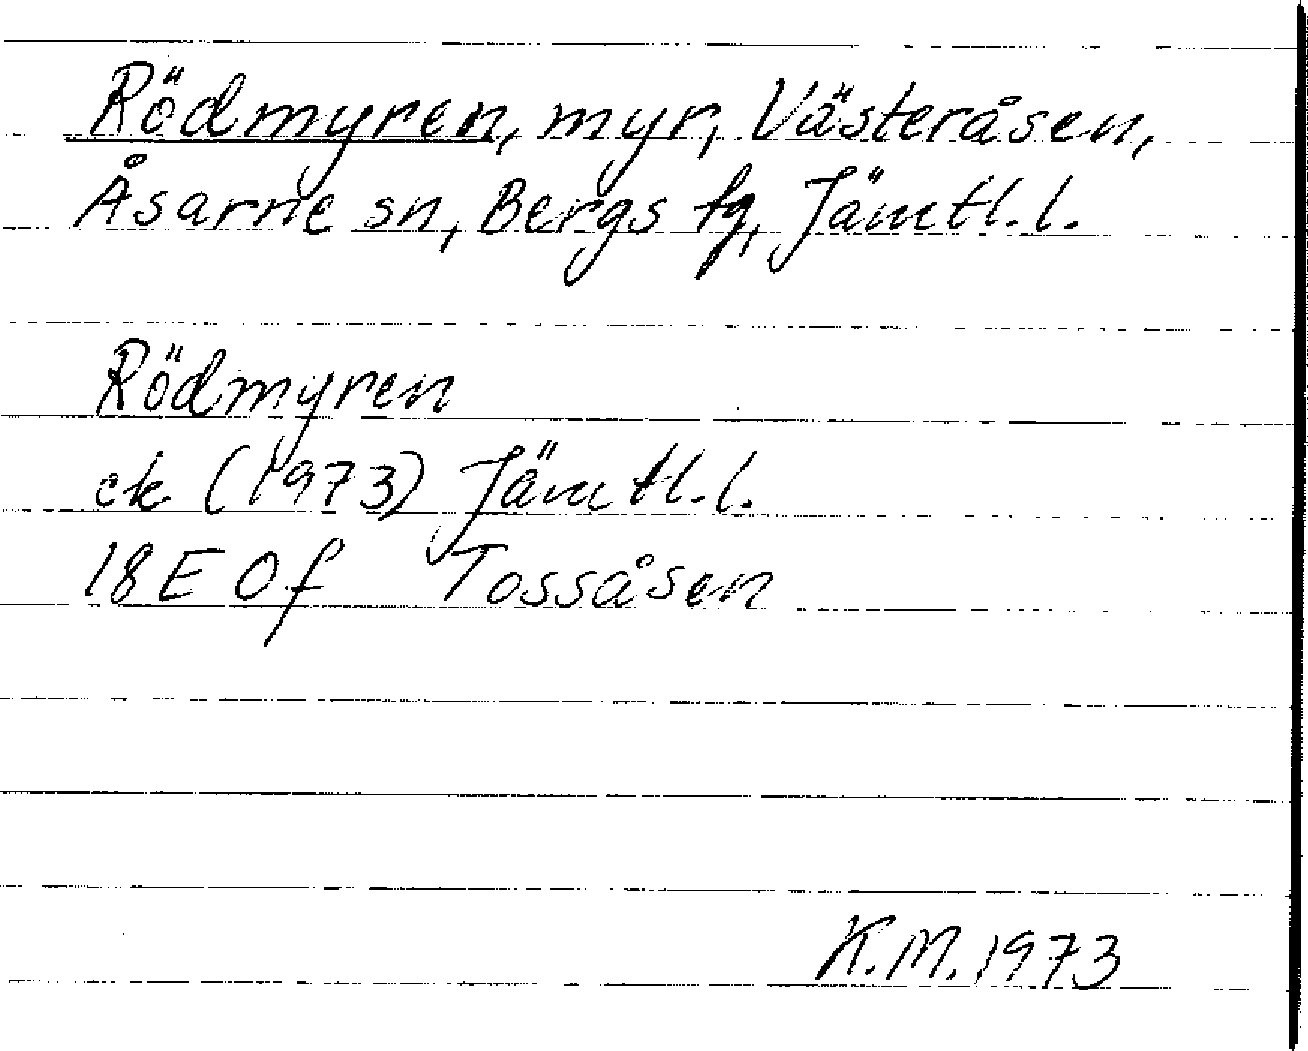 Rödmyren, myr, Västeråsen,
Åsarne sn, Bergs tg, Jämtl. l.
Rödmyren
ek (1973) Jämtl. l.
18E Of Tossåsen
K.M. 1973